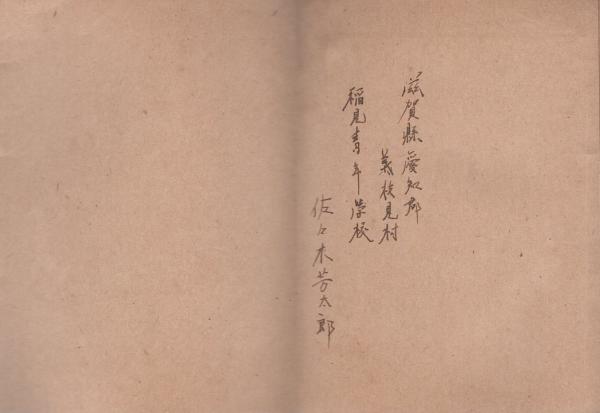 滋賀縣愛知郡
葉枝見村
稲見青年学校
佐々木芳太郎